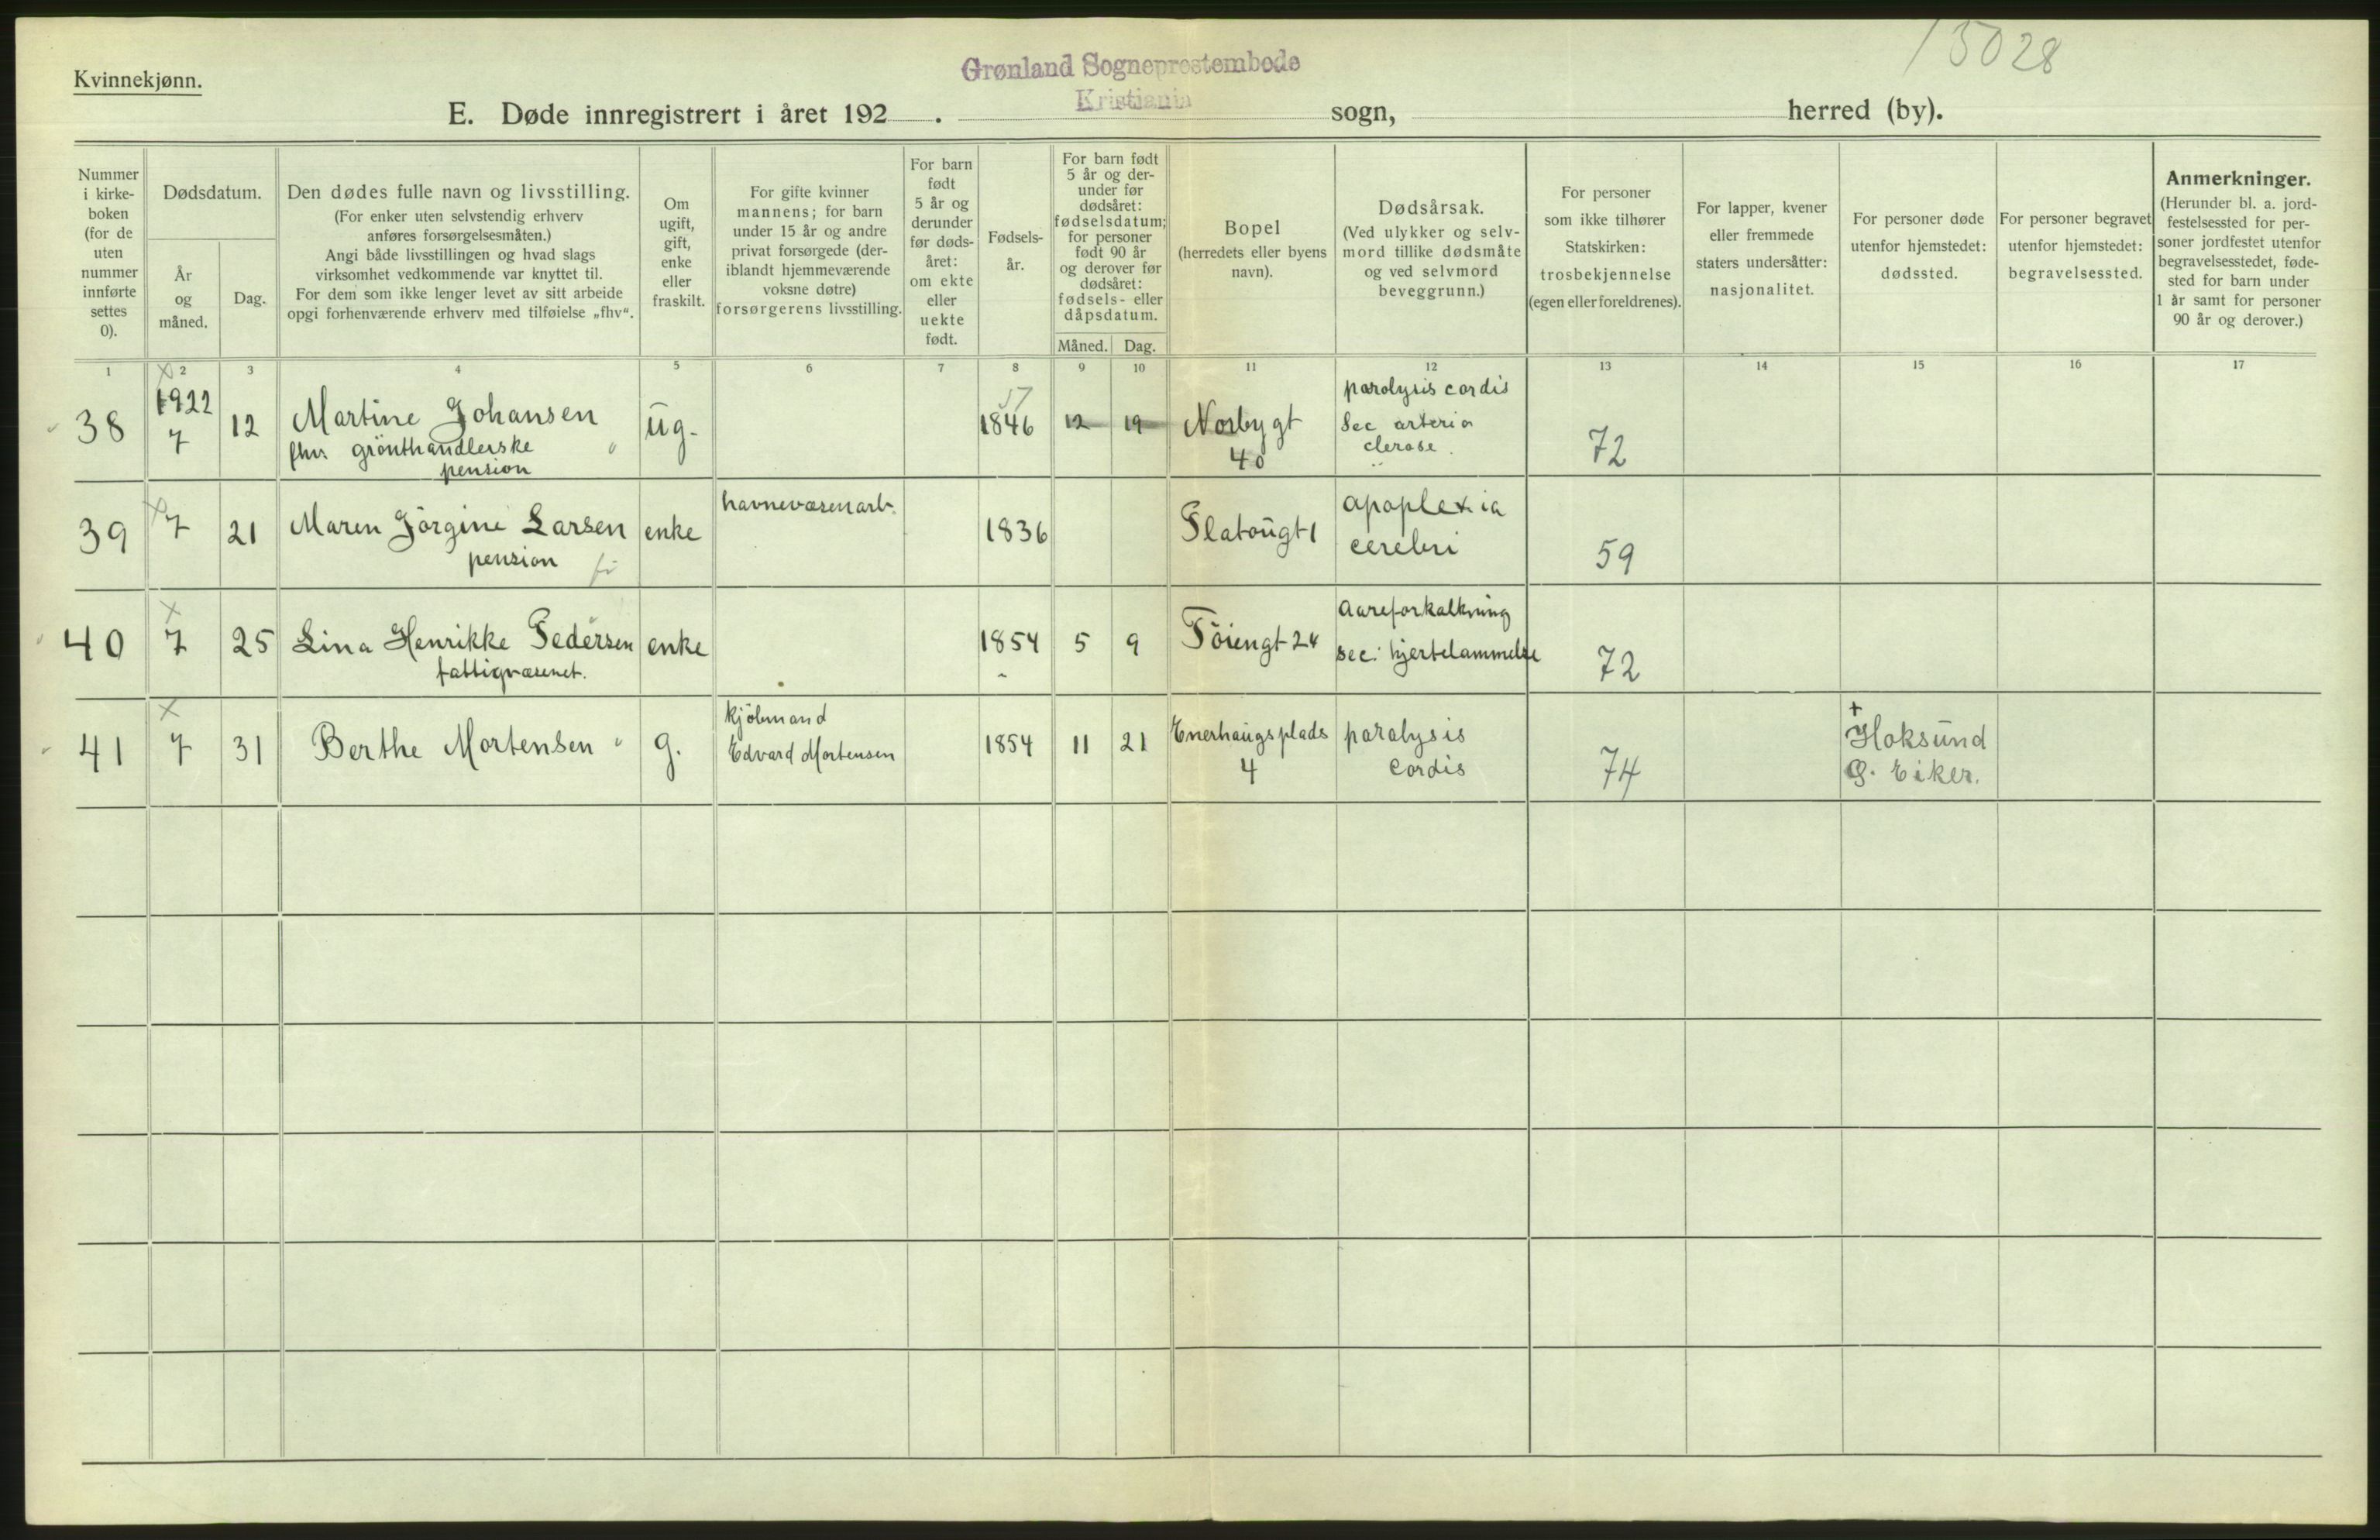 15028
Kvinnekjønn.
Grønland Sogneprestembede
Kristiania
E. Døde innregistrert i året 192 . sogn, herred (by).
Nummer
i kirke-
boken
(for de
uten
nummer
innførte
settes
0).
Dødsdatum.
År
og
måned.
Dag.
Den dødes fulle navn og livsstilling.
(For enker uten selvstendig erhverv
anføres forsørgelsesmåten.)
Angi både livsstillingen og hvad slags
virksomhet vedkommende var knyttet til.
For dem som ikke lenger levet av sitt arbeide
opgi forhenværende erhverv med tilføielse „fhv“.
Om
ugift,
gift,
enke
eller
fraskilt.
For gifte kvinner
mannens; for barn
under 15 år og andre
privat forsørgede (der-
iblandt hjemmeværende
voksne døtre)
forsørgerens livsstilling.
For barn
født
5 år og
derunder
før døds-
året:
om ekte
eller
uekte
født.
Fødsels-
år.
For barn født
5 år og der-
under før
dødsåret:
fødselsdatum;
for personer
født 90 år
og derover før
dødsåret:
fødsels- eller
dåpsdatum.
Måned. Dag.
Bopel
(herredets eller byens
navn).
Dødsårsak.
(Ved ulykker og selv-
mord tillike dødsmåte
og ved selvmord
beveggrunn.)
For personer
som ikke tilhører
Statskirken:
trosbekjennelse
(egen eller foreldrenes).
For lapper, kvener
eller fremmede
staters undersåtter:
nasjonalitet.
For personer døde
utenfor hjemstedet:
dødssted.
For personer begravet
utenfor hjemstedet:
begravelsessted.
Anmerkninger.
(Herunder bl. a. jord-
festelsessted for per-
soner jordfestet utenfor
begravelsesstedet, føde-
sted for barn under
1 år samt for personer
90 år og derover.)
1 2 3 4 5 6 7 8 9 10 11 12 13 14 15 16 17
38
1922
7
12
Martine Johansen
fhv. grönthandlerske
pension
ug.
57
1846
12
19
Norbygt
40
paralysis cordis
Sec arterio
clerose
72
39
7
21
Maren Jörgine Larsen
pension
enke
havnevæsenarb.
1836
Platougt 1
apoplexia
cerebri
59
40
7
25
Lina Henrikke Pedersen
fattigvæsenet.
enke
1854
5
9
Töiengt 24
Aareforkalkning
sec: hjertelammelse
72
41
7
31
Berthe Mortensen
g.
kjöbmand
Edvard Mortensen
1854
11
21
Enerhaugsplads
4
paralysis
cordis
74
+
Hoksund
Ø. Eiker.